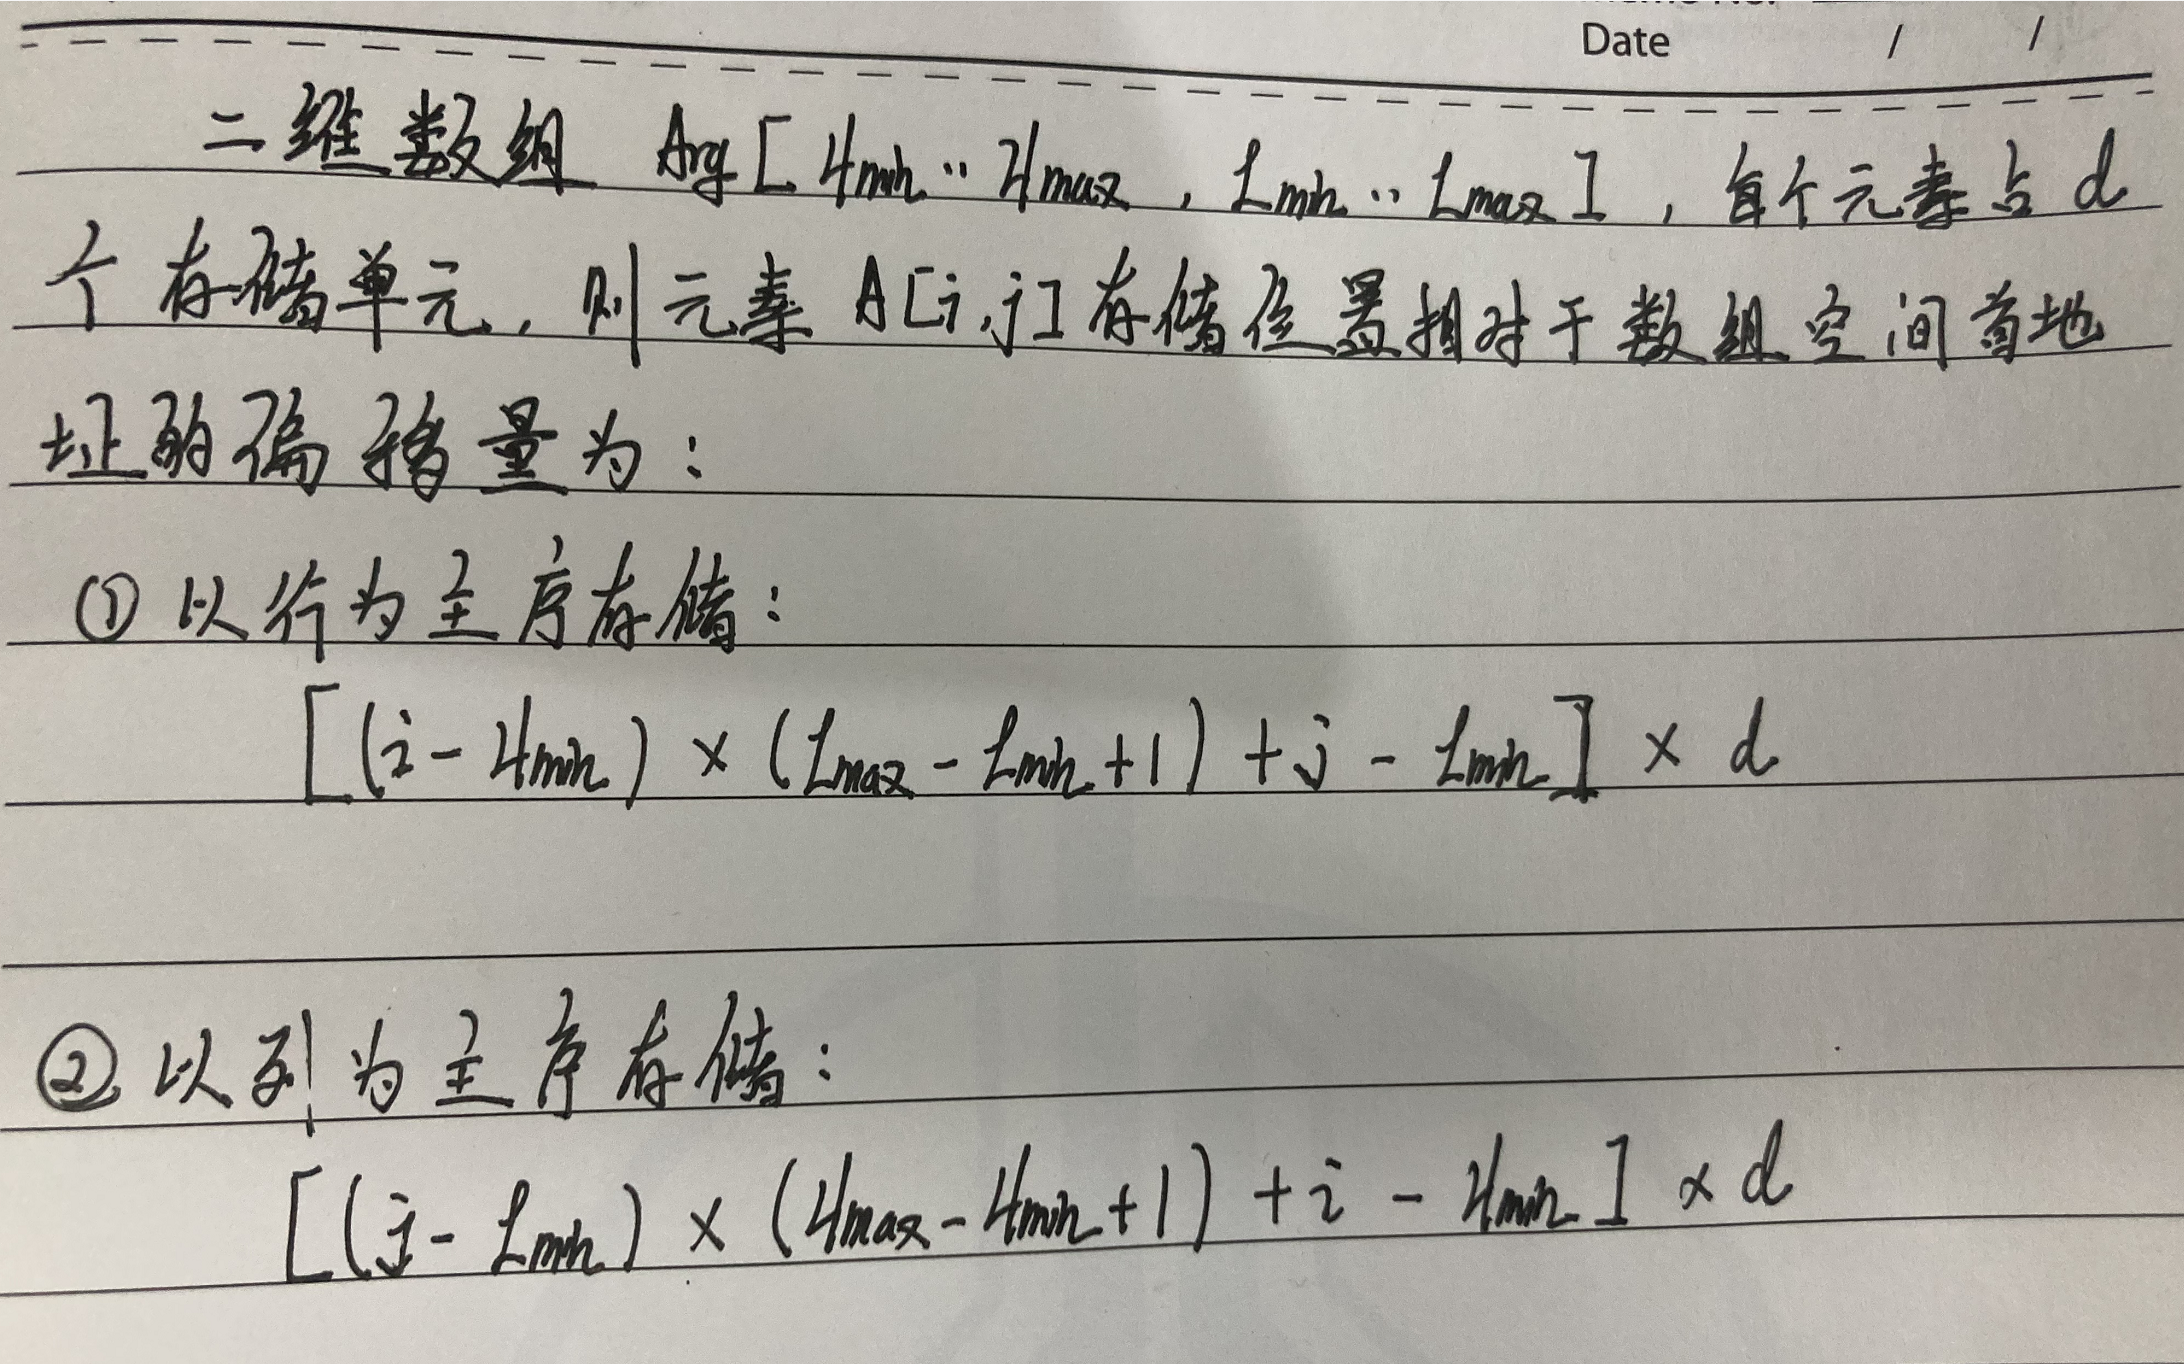 Date / /
二维数组 Arg[Hmin..Hmax, Lmin..Lmax], 每个元素占d
个存储单元, 则元素 A[i,j]存储位置相对于数组空间首地
址的偏移量为:
① 以行为主序存储:
[(i-Hmin)×(Lmax-Lmin+1)+j-Lmin]×d
② 以列为主序存储:
[(j-Lmin)×(Hmax-Hmin+1)+i-Hmin]×d